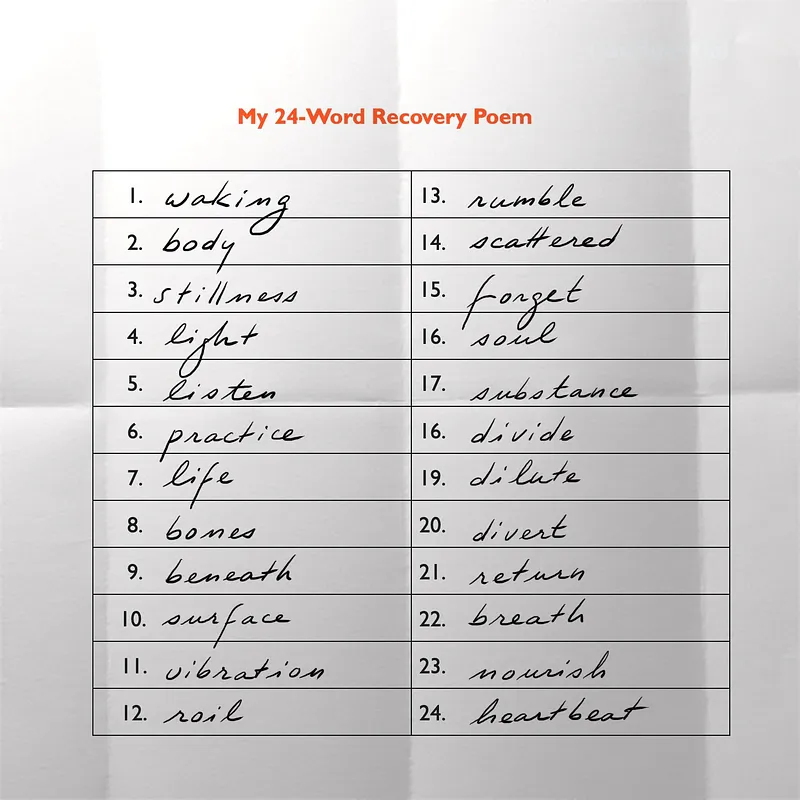 My 24-Word Recovery Poem
1. waking
2. body
3. stillness
4. light
5. listen
6. practice
7. life
8. bones
9. beneath
10. surface
11. vibration
12. roil
13. rumble
14. scattered
15. forget
16. soul
17. substance
16. divide
19. dilute
20. divert
21. return
22. breath
23. nourish
24. heartbeat